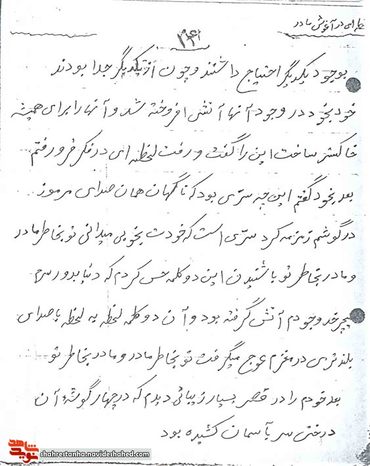 خطرای در آغوش مادر
۲۴۱
بوجود یکدیگر احتیاج داشتند و چون از یکدیگر جدا بودند
خود بخود در وجود آنها آتش افروخته شد و آنها را برای همیشه
خاکستر ساخت این را گفت و رفت لحظه ای در فکر فرو رفتم
بعد بخود گفتم این چه سرّی بود که ناگهان همان صدای مرموز
در گوشم زمزمه کرد سرّی است که خودت بخوبی میدانی تو بخاطر مادر و
و مادر بخاطر تو با شنیدن این دو کلمه حس کردم که دنیا بدور سرم
میچرخد وجودم آتش گرفته بود و آن دو کلمه لحظه به لحظه با صدای
بلندتری در مغزم عوج میگرفت تو بخاطر مادر و مادر بخاطر تو
بعد خودم را در قصر بسیار زیبائی دیدم که در چهار گوشه آن
درختی سر بآسمان کشیده بود
نوید شاهد
shahrestanha.navideshahed.com